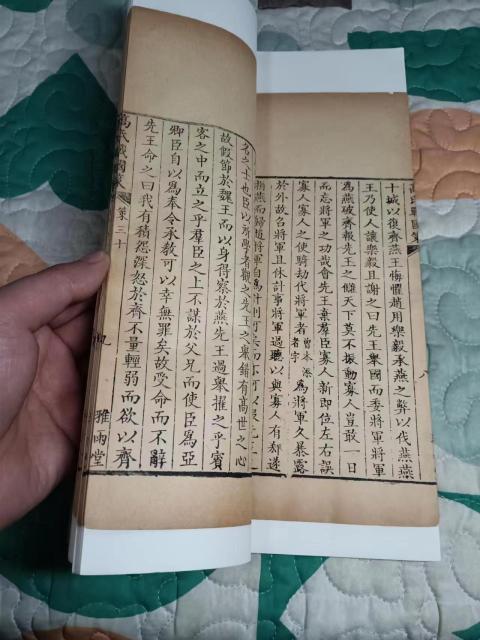 十城以復齊燕王悔懼趙用樂毅承燕之弊以伐燕燕
王乃使人讓樂毅且謝之曰先王舉國而委將軍將軍
為燕破齊報先王之讎天下莫不振動寡人豈敢一日
而忘將軍之功哉會先王棄羣臣寡人新即位左右誤
寡人寡人之使騎劫代將軍曾本添者字為將軍久暴露
於外故召將軍且休計事將軍過聽以與寡人有郄遂
捐燕而歸趙將軍自為計則可矣而亦何以報先王
名之士也臣以所學者觀之先王之舉錯有高世之心
故假節於魏王而以身得察於燕先王過舉擢之乎賓
客之中而立之乎羣臣之上不謀於父兄而使臣為亞
卿臣自以為奉令承教可以幸無罪矣故受命而不辭
先王命之曰我有積怨深怒於齊不量輕弱而欲以齊
高氏戰國策 卷三十 雅雨堂